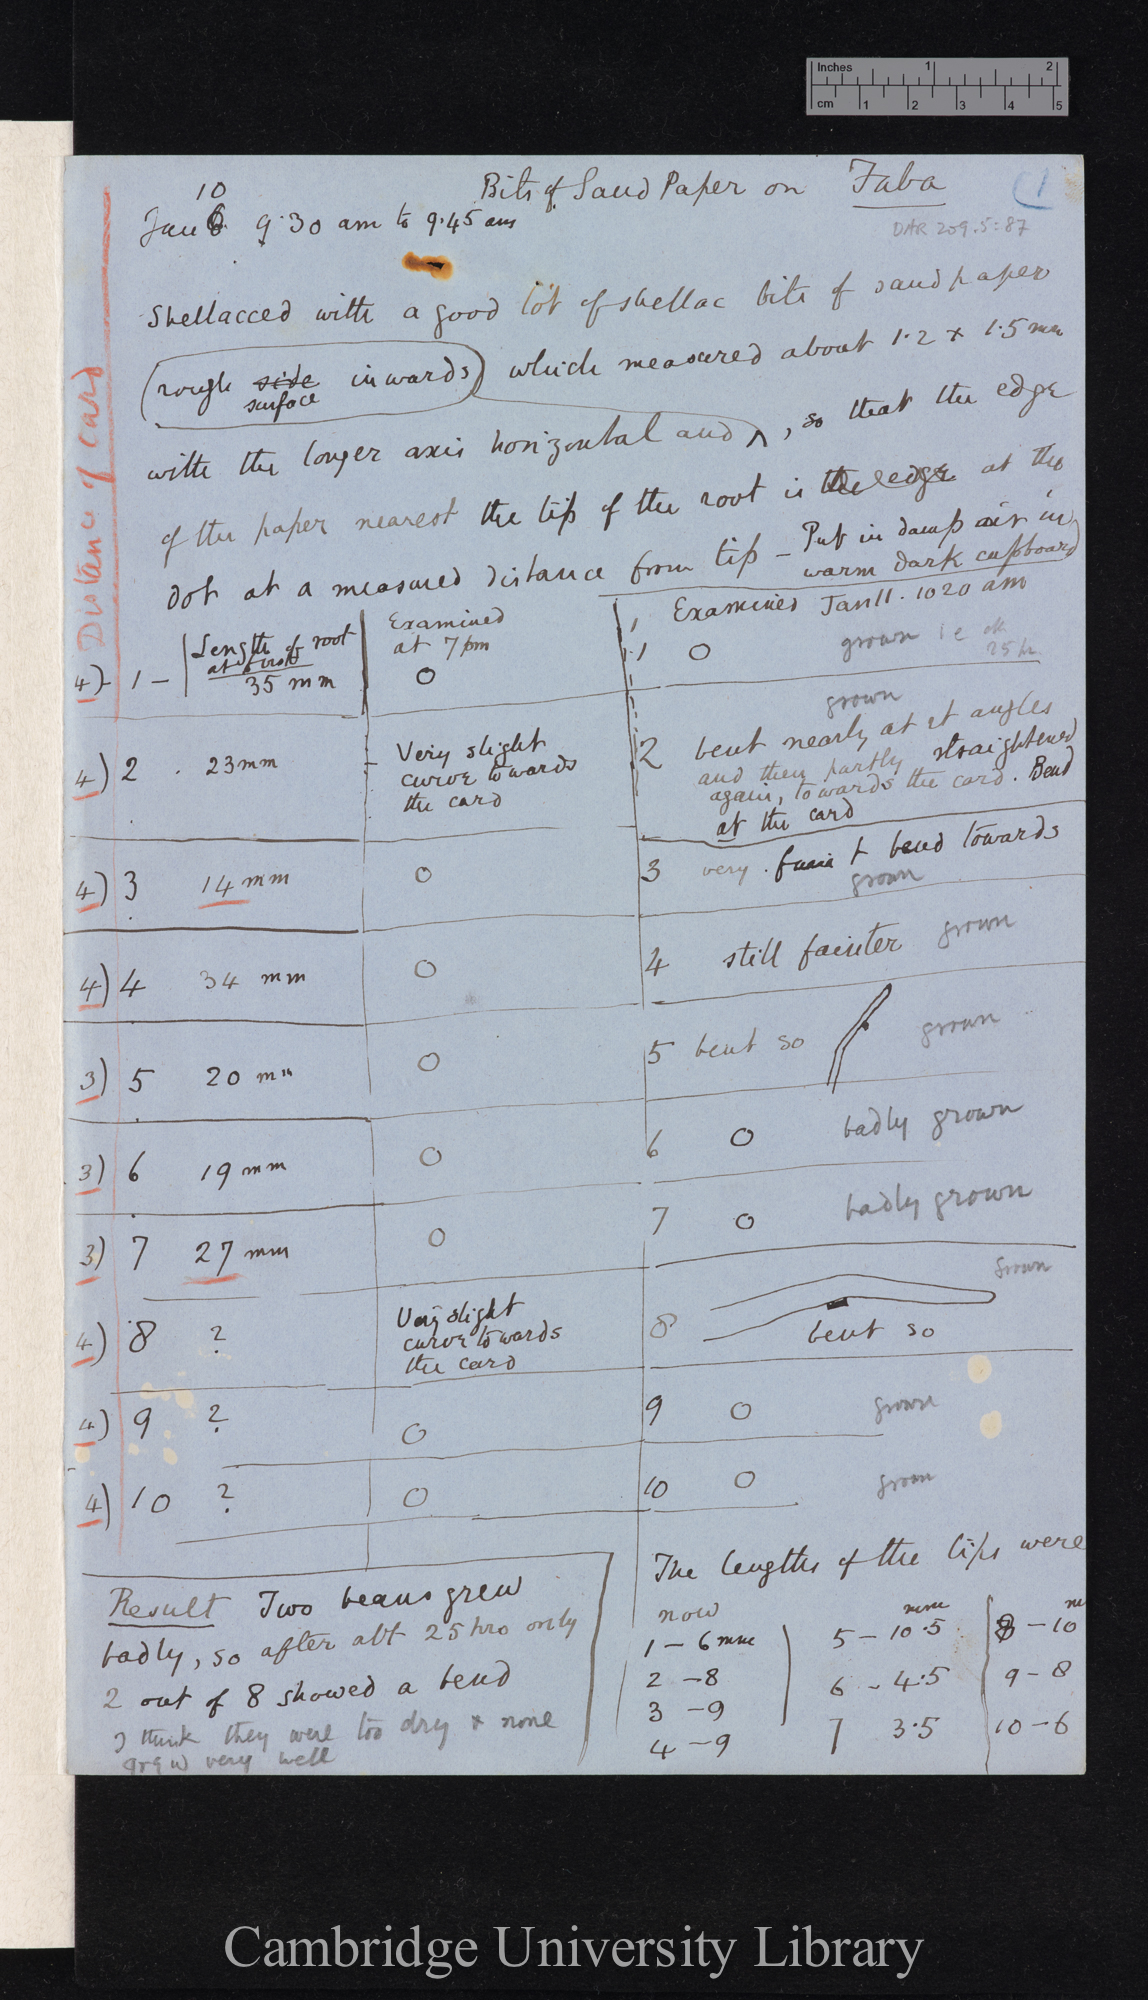 Inches 1 2
cm 1 2 3 4 5
Bits of Sand Paper on Faba
1
10
Jan 9.30 am to 9.45 am
DAR 209.5:87
Distance of card
Shellacced with a good lot of shellac bits of sandpaper
(rough side surface inwards) which measured about 1.2 x 1.5 mm
with the longer axis horizontal and ^, so that the edge
of the paper nearest the tip of the root is the edge at the
dot at a measured distance from tip - Put in damp air in
warm dark cupboard
Length of root
at first
Examined
at 7 pm
Examined Jan 11. 10 20 am
4) 1 - 35 mm O 1 O grown i e
25 h.
4) 2 . 23 mm Very slight
curve towards
the card
2 grown
bent nearly at rt angles
and then partly straightened
again, towards the card. Bend
at the card
4) 3 14 mm O 3 very faint bend towards
grown
4) 4 34 mm O 4 still fainter grown
3) 5 20 mm O 5 bent so grown
3) 6 19 mm O 6 O badly grown
3) 7 27 mm O 7 O badly grown
4) 8 ? Very slight
curve towards
the card
8 bent so grown
4) 9 ? O 9 O grown
4) 10 ? O 10 O grown
Result Two beans grew
badly, so after abt 25 hrs only
2 out of 8 showed a bend
I think they were too dry & none
grew very well
The lengths of the tips were
now
1 - 6 mm
2 - 8
3 - 9
4 - 9
mm
5 - 10.5
6 - 4.5
7 3.5
8 - 10
9 - 8
10 - 6
Cambridge University Library